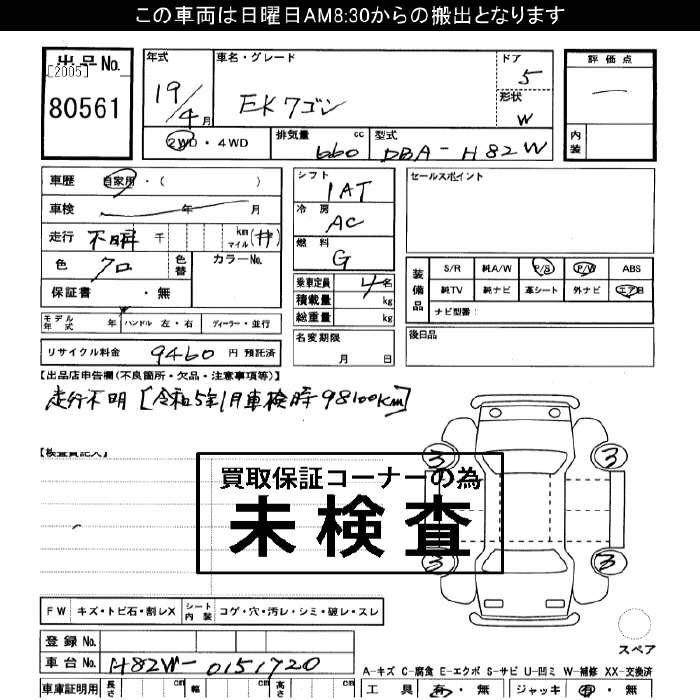 この車両は日曜日AM8:30からの搬出となります
出品No.
[2005]
80561
年式 19/4月
車名・グレード EKワゴン
ドア 5
形状 W
評価点 —
内装
2WD・4WD
排気量 660 cc
型式 DBA-H82W
車歴 自家用・( )
車検 年 月
走行 不明 千 km マイル (#)
色 クロ 色替
カラーNo.
保証書 ・無
シフト 1AT
冷房 AC
燃料 G
乗車定員 4名
積載量 kg
総重量 kg
名変期限 月 日
セールスポイント
装備品 S/R 純A/W P/S P/W ABS
純TV 純ナビ 革シート 外ナビ エアB
ナビ型番:
後日品
モデル年式 年 ハンドル 左・右 ディーラー・並行
リサイクル料金 9460 円 預託済
【出品店申告欄(不良箇所・欠品・注意事項等)】
走行不明 [令和5年1月車検時98100km]
【検査員記入】
買取保証コーナーの為
未検査
3 3
3 3
FW キズ・トビ石・割レX シート内装 コゲ・穴・汚レ・シミ・破レ・スレ
スペア
登録No.
車台No. H82W-0151720
A-キズ C-腐食 E-エクボ S-サビ U-凹ミ W-補修 XX-交換済
車庫証明用 長さ cm 幅 cm 高さ cm
工具 有・無 ジャッキ 有・無